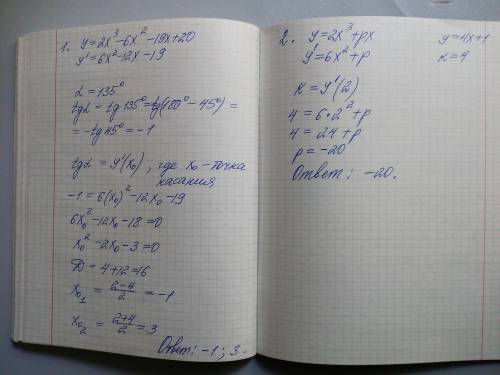 1. y=2x³-6x²-19x+20
y'=6x²-12x-19
α=135°
tgα=tg135°=tg(180°-45°)=
=-tg45°=-1
tgα=y'(x₀), где x₀-точка
касания
-1=6(x₀)²-12x₀-19
6x₀²-12x₀-18=0
x₀²-2x₀-3=0
D=4+12=16
x₀₁=(2-4)/2=-1
x₀₂=(2+4)/2=3
Ответ: -1; 3.
2. y=2x³+px y=4x+1
y'=6x²+p k=4
k=y'(2)
4=6·2²+p
4=24+p
p=-20
Ответ: -20.